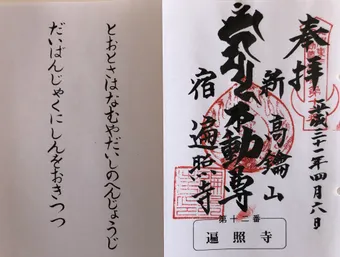 奉拝
平成三十一年四月六日
新高山
不動尊
宿 遍照寺
第十二番
遍照寺
とおとさはなむやだいしのへんじょうじ
だいばんじゃくにしんをおきつつ